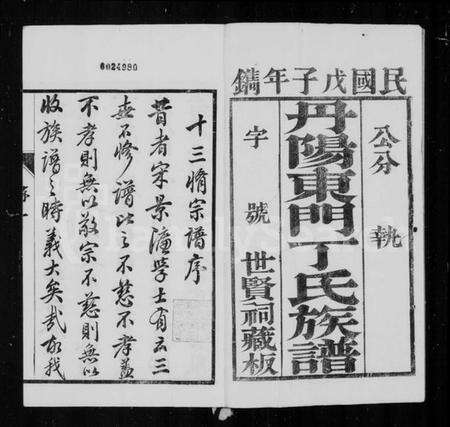 民國戊子年鐫
公分 執
丹陽東門丁氏族譜
字 號 世賢祠藏板
6024980
十三脩宗譜序
昔者宋景濂學士有云三
世不修譜比之不慈不孝蓋
不孝則無以敬宗不慈則無以
收族譜之時義大矣哉故我